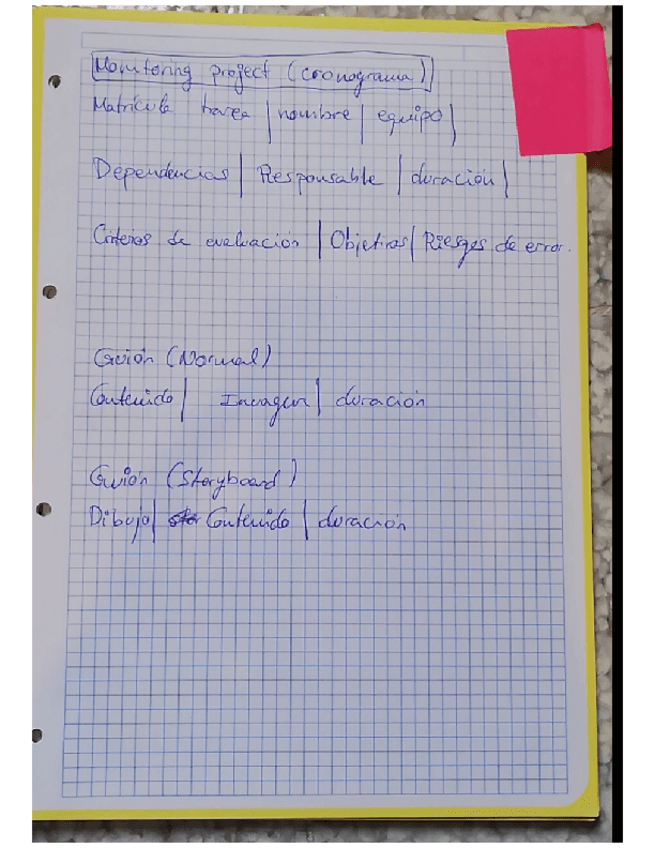 Monitoring project (cronograma)
Matrícula tarea | nombre | equipo |
Dependencias | Responsable | duración |
Criterios de evaluación | Objetivos | Riesgos de error.
Guión (Normal)
Contenido | Imagen | duración
Guión (Storyboard)
Dibujo | Contenido | duración